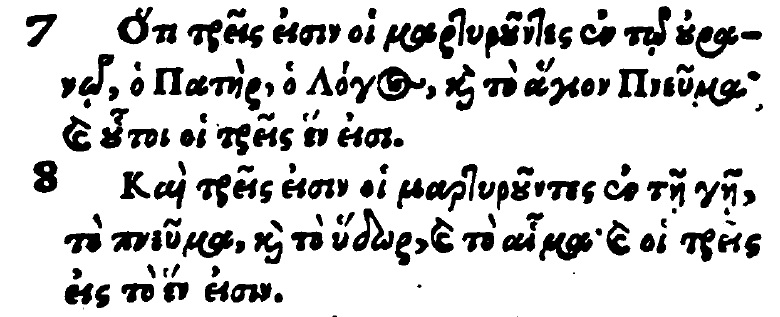 7 Ὅτι τρεῖς εἰσιν οἱ μαρτυροῦντες ἐν τῷ οὐρα-
νῷ, ὁ Πατὴρ, ὁ Λόγος, καὶ τὸ ἅγιον Πνεῦμα·
καὶ οὗτοι οἱ τρεῖς ἕν εἰσι.
8 Καὶ τρεῖς εἰσιν οἱ μαρτυροῦντες ἐν τῇ γῇ,
τὸ πνεῦμα, καὶ τὸ ὕδωρ, καὶ τὸ αἷμα· καὶ οἱ τρεῖς
εἰς τὸ ἕν εἰσιν.